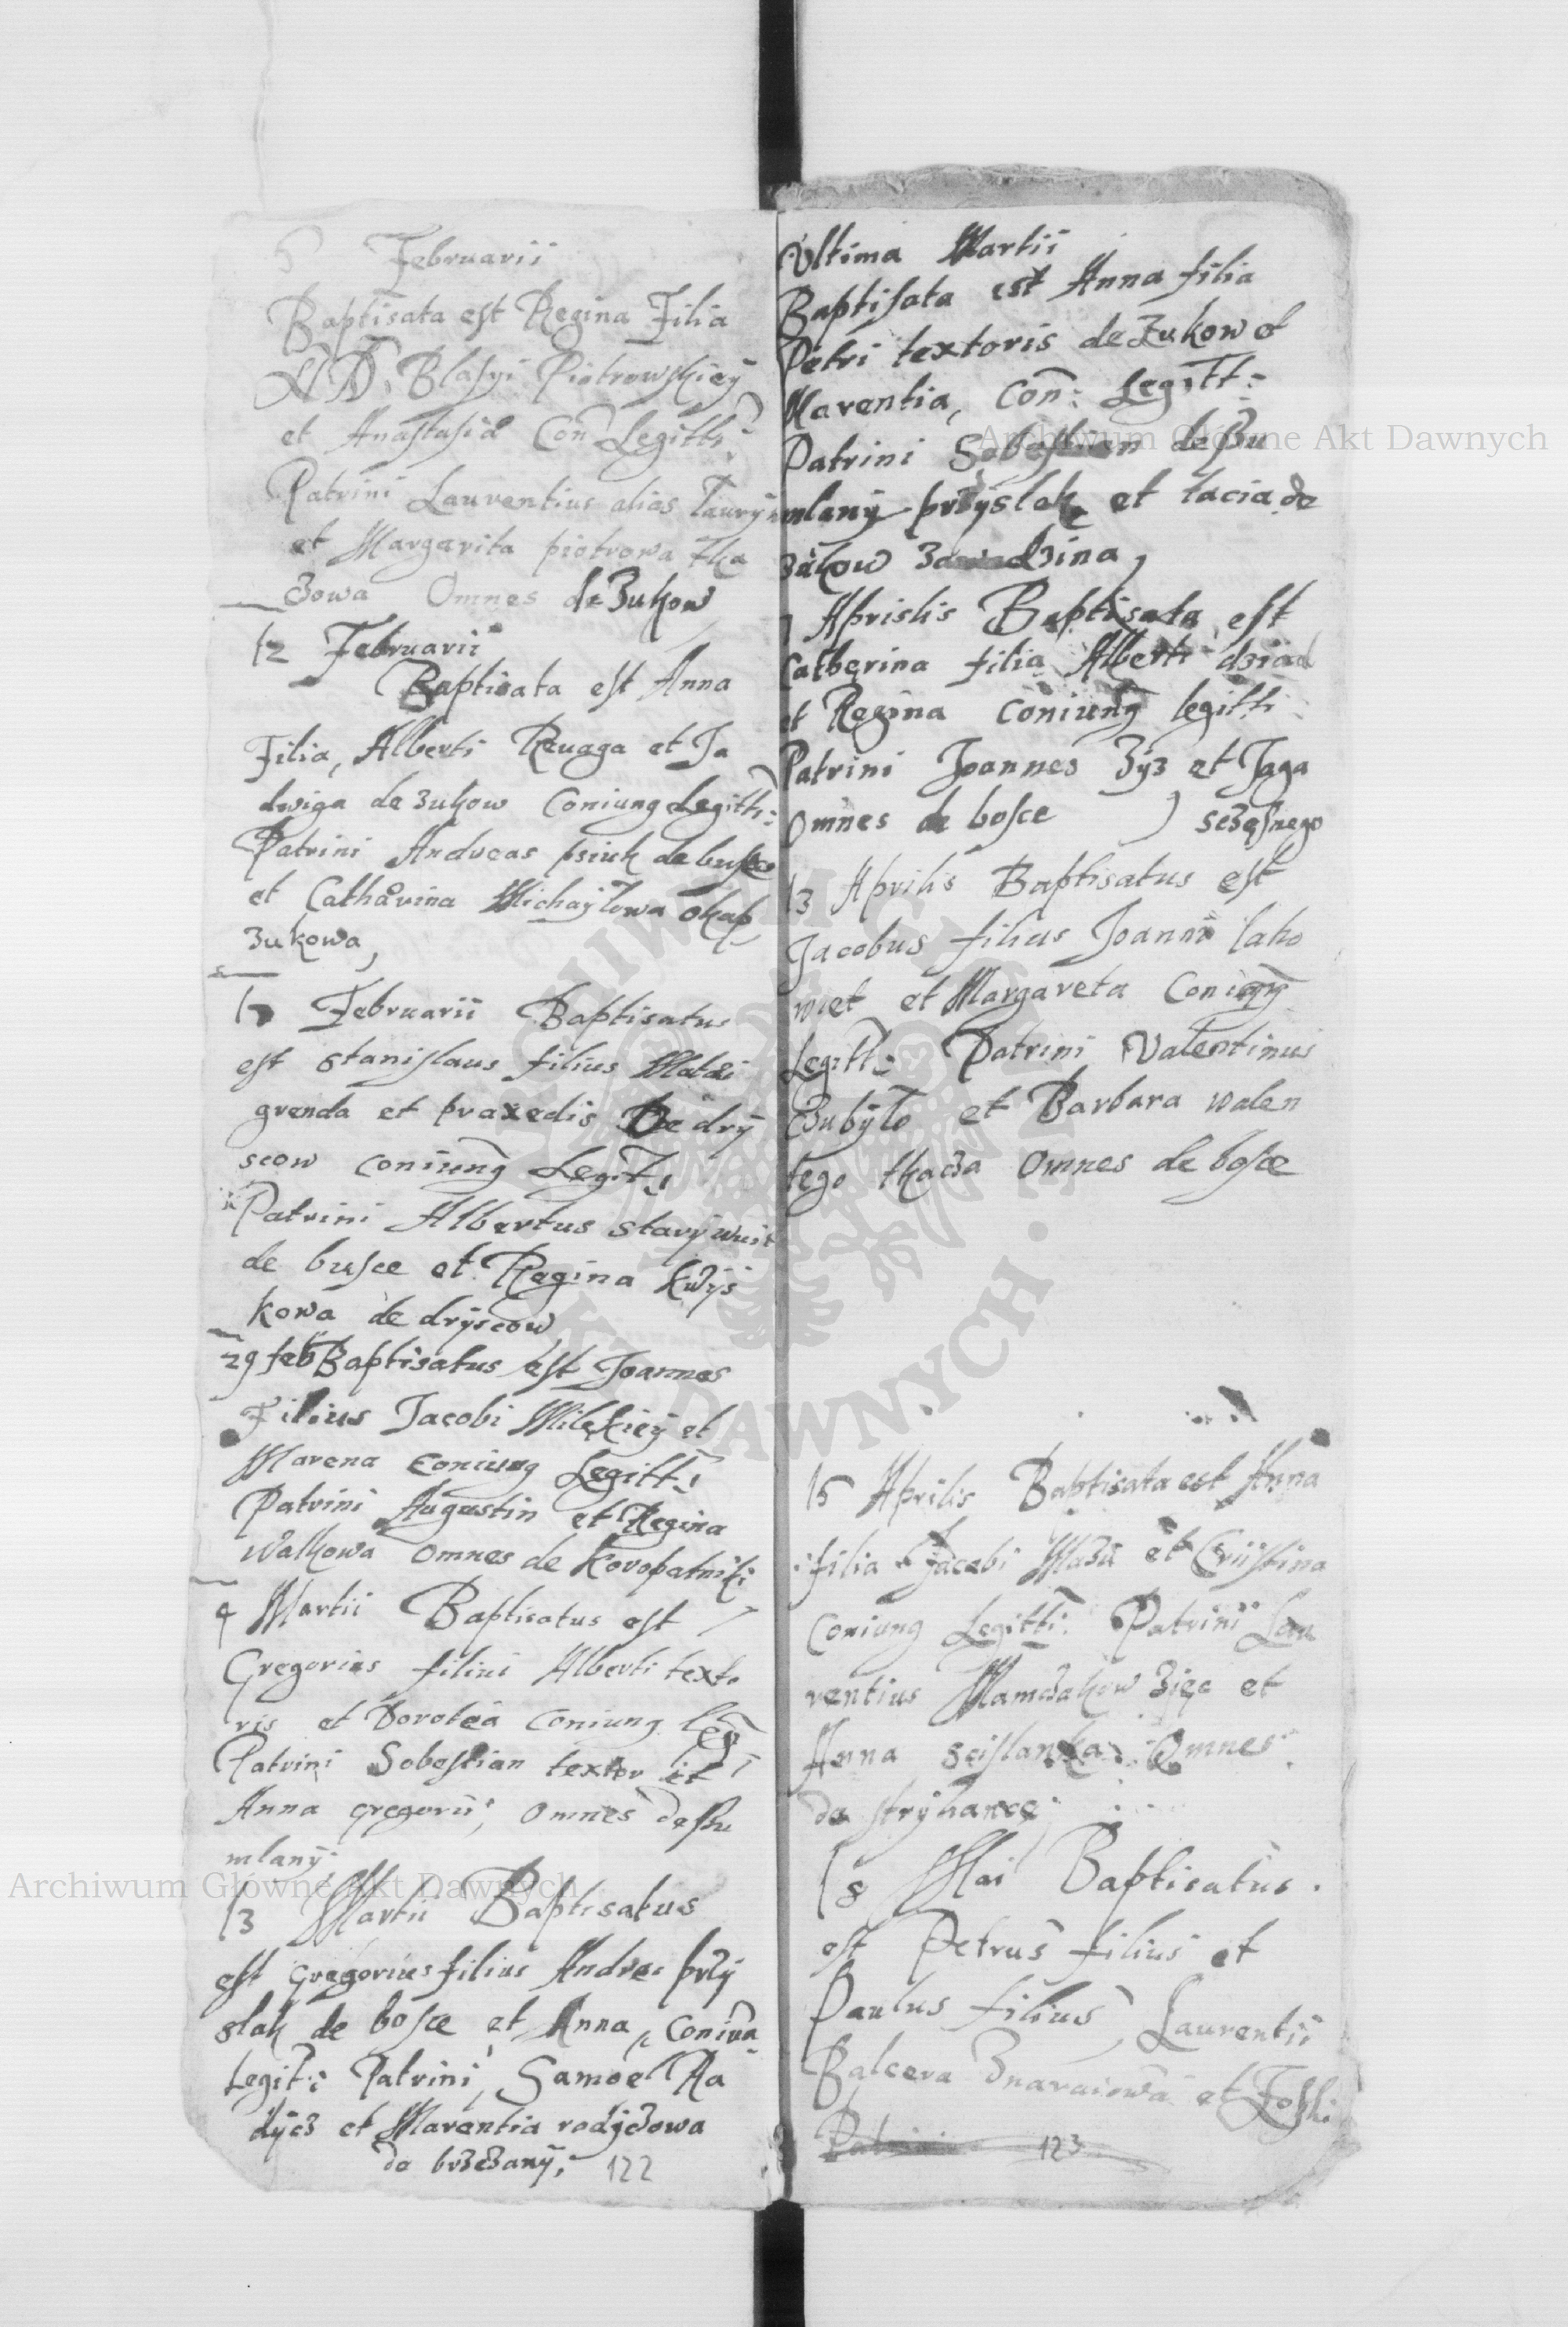 5 Februarii
Baptisata est Regina Filia
N D. Blasyi Piotrowskiey
et Anastasia Con Legitti:
Patrini Laurentius alias Laury
et Margarita piotrowa tka
czowa Omnes de Zukow
12 Februarii
Baptisata est Anna
Filia, Alberti et Ja
dwiga de zukow Coniung Legitti:
Patrini Andreas psiuk de busce
et Catharina Michayłowa okap
zukowa,
17 Februarii Baptisatus
est Stanislaus filius
grenda et praxedis De dry
scow coniung Legit:
Patrini Albertus stary wuit
de busce et Regina kwys
kowa de dryscow
29 feb Baptisatus est Joannes
Filius Jacobi Milskiey et
Marena coniung Legitt:
Patrini Augustin et Regina
walkowa omnes de koropatniki
4 Martii Baptisatus est
Gregorius filius Alberti texto
ris et Dorotea Coniung Leg
Patrini Sobestian textor et
Anna gregorii, omnes de shu
mlany
13 Martii Baptisatus
est Gregorius filius Andrei przy
slak de bosce et Anna, Coniun
Legit: Patrini Samoel Ra
dycz et Marentia radyczowa
de brzezany, 122
Ultima Martii
Baptisata est Anna filia
Petri textoris de Zukow et
Marentia, Con: Legitt:
Patrini Sobestian de shu
mlany przyslak et lacia de
zukow
Aprislis Baptisata est
Catherina filia Alberti dziad
et Regina coniung legitti
Patrini Joannes Zyz et Jaga
omnes de bosce ) sczesnego
13 Aprilis Baptisatus est
Jacobus filius Joanni laho
wiet et Margareta Coniung
Legitt: Patrini Valentinus
Zubyło et Barbara walen
tego tkacza Omnes de bosce
15 Aprilis Baptisata est Anna
filia Jacobi Mazu et Criistina
Coniung Legitti: Patrini Lau
rentius Mamczakow zięc et
Anna scislanka Omnes
de stryhance
18 Mai Baptisatus
est Petrus filius et
Paulus filius, Laurentii
Balcera et Foshi
Patrini 123
Archiwum Główne Akt Dawnych
Archiwum Główne Akt Dawnych